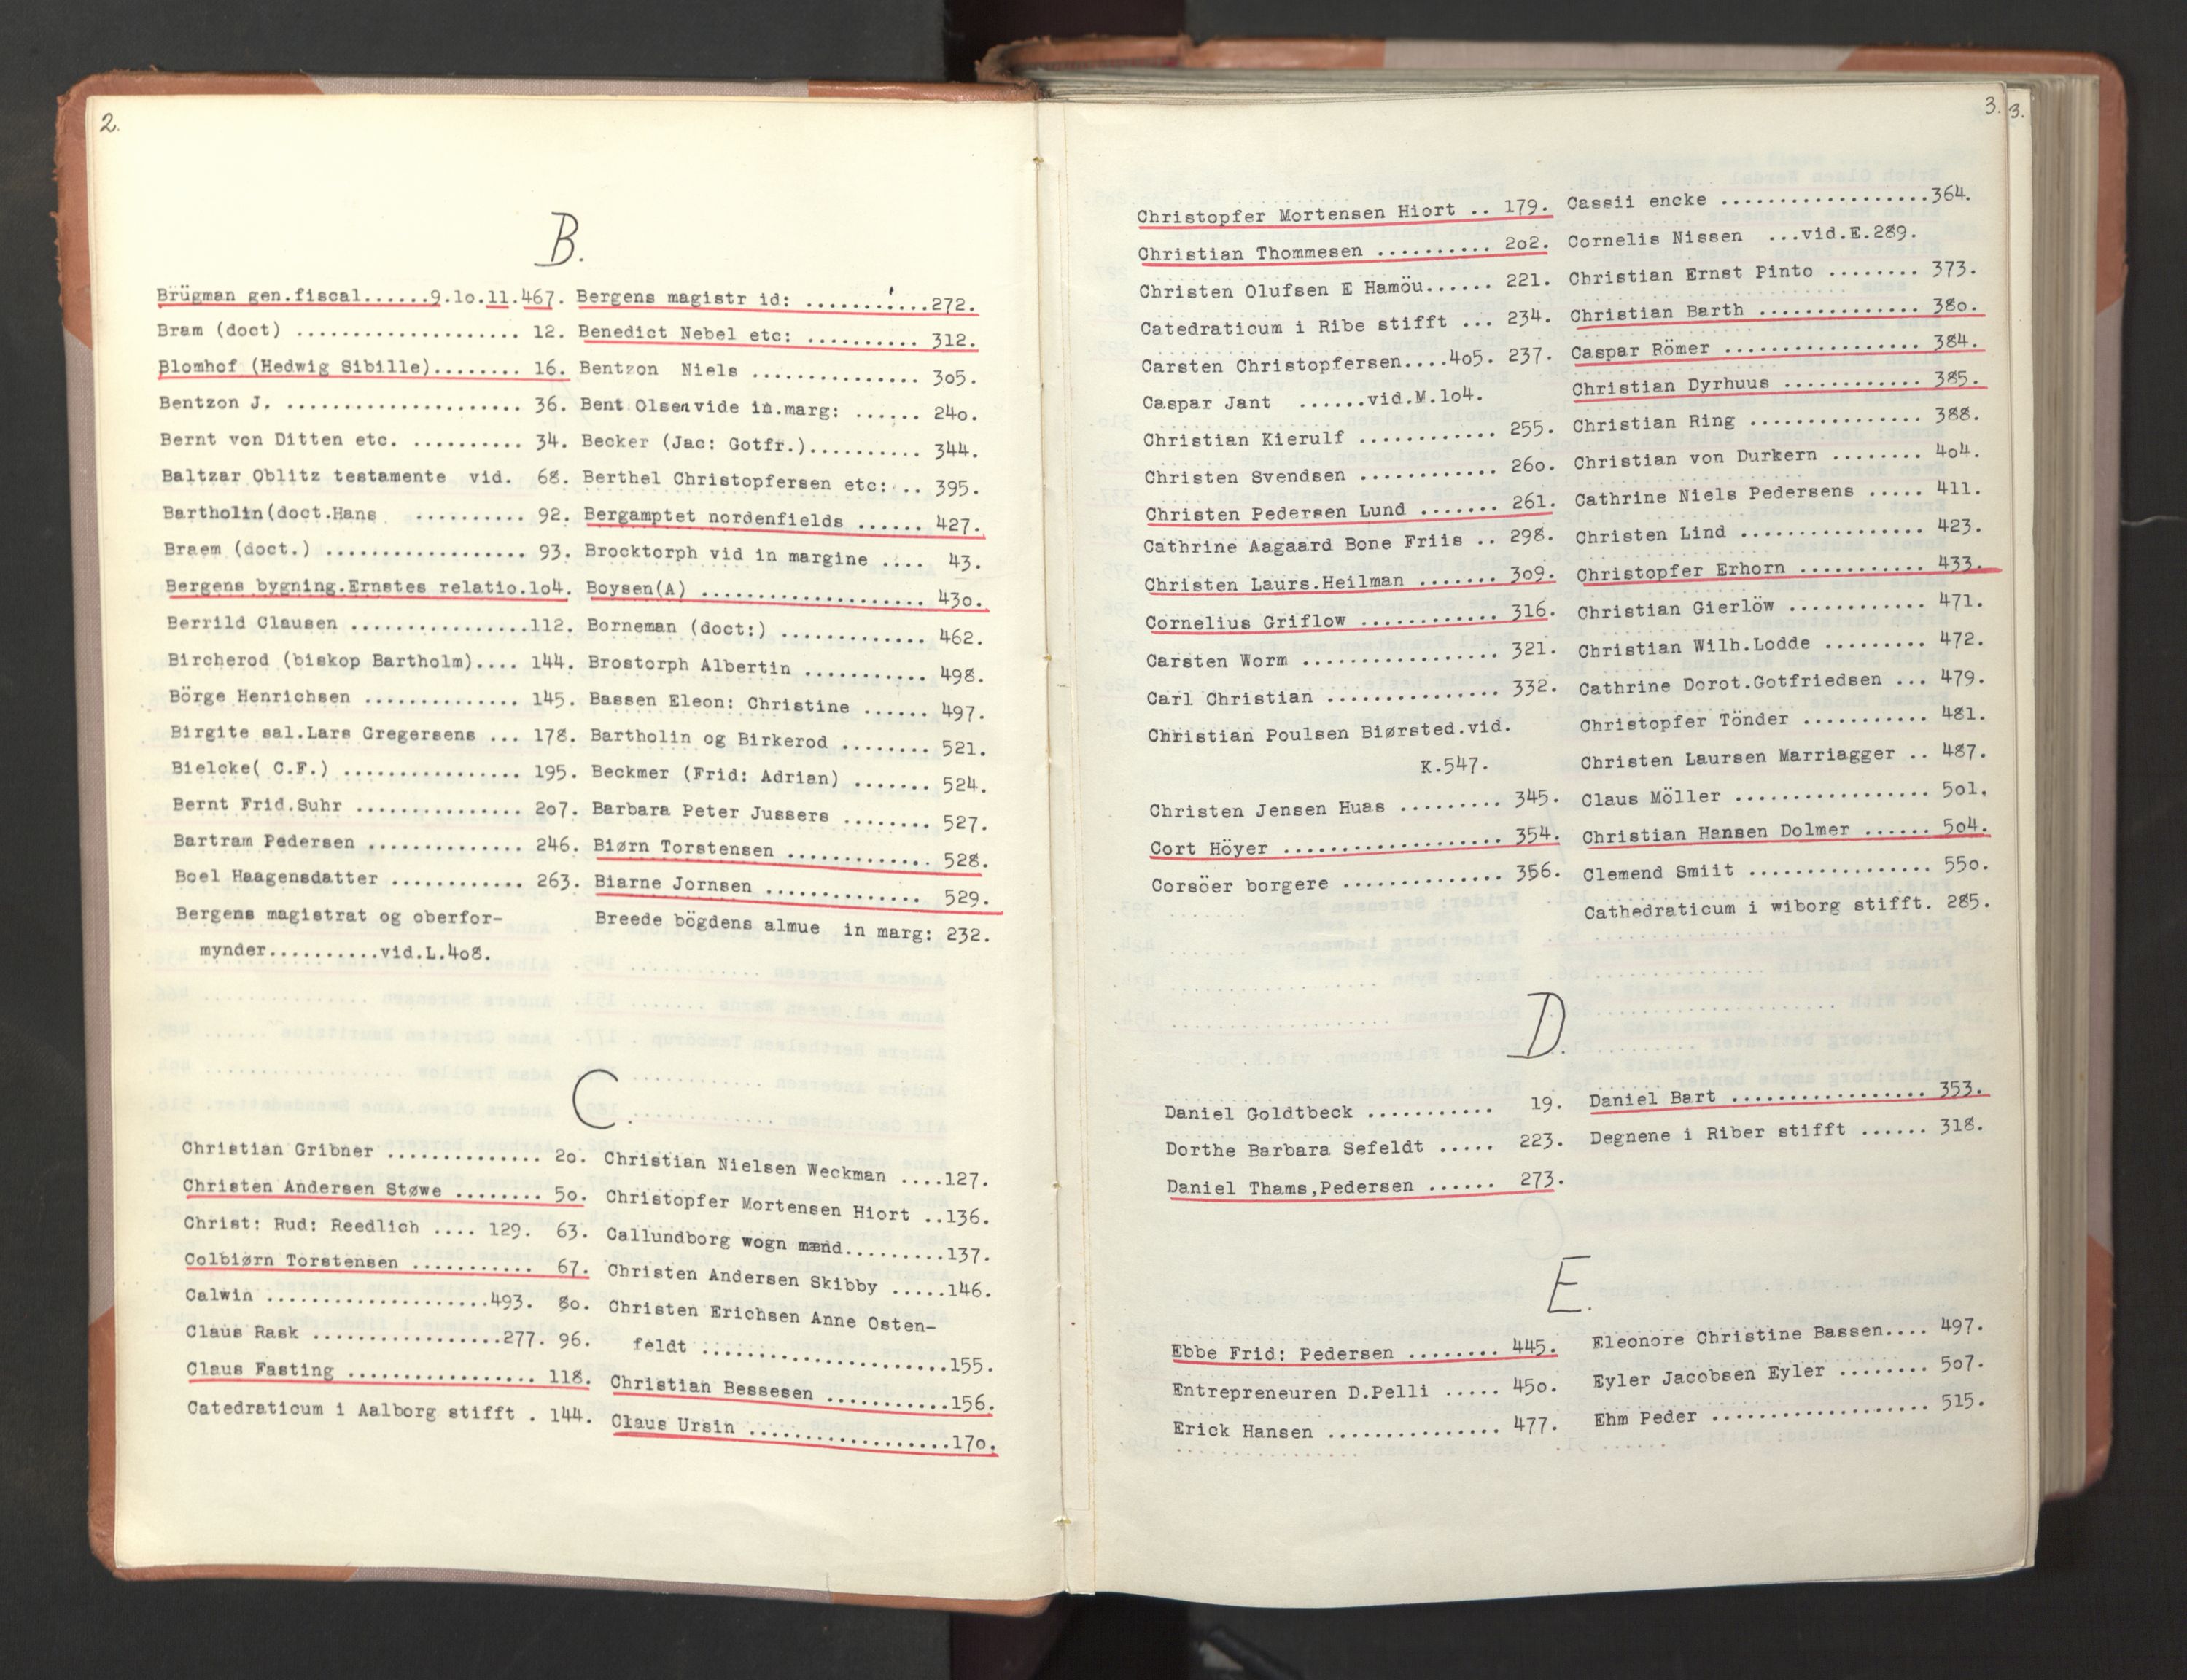 2.
B.
Brügman gen.fiscal......9.10.11.467.
Bram (doct) ................... 12.
Blomhof (Hedwig Sibille)........ 16.
Bentzon J. ..................... 36.
Bernt von Ditten etc. .......... 34.
Baltzar Oblitz testamente vid. 68.
Bartholin(doct.Hans .......... 92.
Braem (doct.) .................. 93.
Bergens bygning.Ernstes relatio.104.
Berrild Clausen ................112.
Bircherod (biskop Bartholm).... 144.
Börge Henrichsen .............. 145.
Birgite sal.Lars Gregersens ... 178.
Bielcke( C.F.) ................ 195.
Bernt Frid.Suhr ............... 207.
Bartram Pedersen .............. 246.
Boel Haagensdatter ............ 263.
Bergens magistrat og oberfor-
mynder..........vid.L.408.
Bergens magistr id: ............272.
Benedict Nebel etc: .......... 312.
Bentzon Niels ............... 305.
Bent Olsenvide in.marg: ...... 240.
Becker (Jac: Gotfr.).......... 344.
Berthel Christopfersen etc: .. 395.
Bergamptet nordenfields ...... 427.
Brocktorph vid in margine .... 43.
Boysen(A) .................... 430.
Borneman (doct:) ............. 462.
Brostorph Albertin ........... 498.
Bassen Eleon: Christine ...... 497.
Bartholin og Birkerod ........ 521.
Beckmer (Frid: Adrian) ....... 524.
Barbara Peter Jussers ........ 527.
Biørn Torstensen ............. 528.
Biarne Jornsen ............... 529.
Breede bögdens almue in marg: 232.
C.
Christian Gribner .............. 20.
Christen Andersen Støwe ........ 50.
Christ: Rud: Reedlich .... 129. 63.
Colbiørn Torstensen ........... 67.
Calwin ....................493. 80.
Claus Rask .................277. 96.
Claus Fasting ................. 118.
Catedraticum i Aalborg stifft . 144.
Christian Nielsen Weckman ....127.
Christopfer Mortensen Hiort ..136.
Callundborg wogn mænd.........137.
Christen Andersen Skibby .....146.
Christen Erichsen Anne Osten-
feldt ......................155.
Christian Bessesen ...........156.
Claus Ursin ..................170.
3.
3.
Christopfer Mortensen Hiort .. 179.
Christian Thommesen .......... 202.
Christen Olufsen E Hamöu...... 221.
Catedraticum i Ribe stifft ... 234.
Carsten Christopfersen....405. 237.
Caspar Jant ......vid.M.104.
Christian Kierulf ............ 255.
Christen Svendsen ............ 260.
Christen Pedersen Lund ....... 261.
Cathrine Aagaard Bone Friis .. 298.
Christen Laurs.Heilman ....... 309.
Cornelius Griflow ............ 316.
Carsten Worm ................. 321.
Carl Christian ............... 332.
Christian Poulsen Biørsted.vid.
K.547.
Christen Jensen Huas ......... 345.
Cort Höyer ................... 354.
Corsöer borgere .............. 356.
Cassii encke ..................364.
Cornelis Nissen ...vid.E.289.
Christian Ernst Pinto ........ 373.
Christian Barth .............. 380.
Caspar Römer ................. 384.
Christian Dyrhuus ............ 385.
Christian Ring ............... 388.
Christian von Durkern ........ 404.
Cathrine Niels Pedersens ..... 411.
Christen Lind ................ 423.
Christopfer Erhorn ........... 433.
Christian Gierlöw ............ 471.
Christian Wilh.Lodde ......... 472.
Cathrine Dorot.Gotfriedsen ... 479.
Christopfer Tönder ........... 481.
Christen Laursen Marriagger .. 487.
Claus Möller ................. 501.
Christian Hansen Dolmer ...... 504.
Clemend Smiit ................ 550.
Cathedraticum i wiborg stifft. 285.
D.
Daniel Goldtbeck ........... 19.
Dorthe Barbara Sefeldt ..... 223.
Daniel Thams,Pedersen ...... 273.
Daniel Bart ................. 353.
Degnene i Riber stifft ...... 318.
E.
Ebbe Frid: Pedersen ........ 445.
Entrepreneuren D.Pelli ..... 450.
Erick Hansen ............... 477.
Eleonore Christine Bassen.... 497.
Eyler Jacobsen Eyler ........ 507.
Ehm Peder ................... 515.